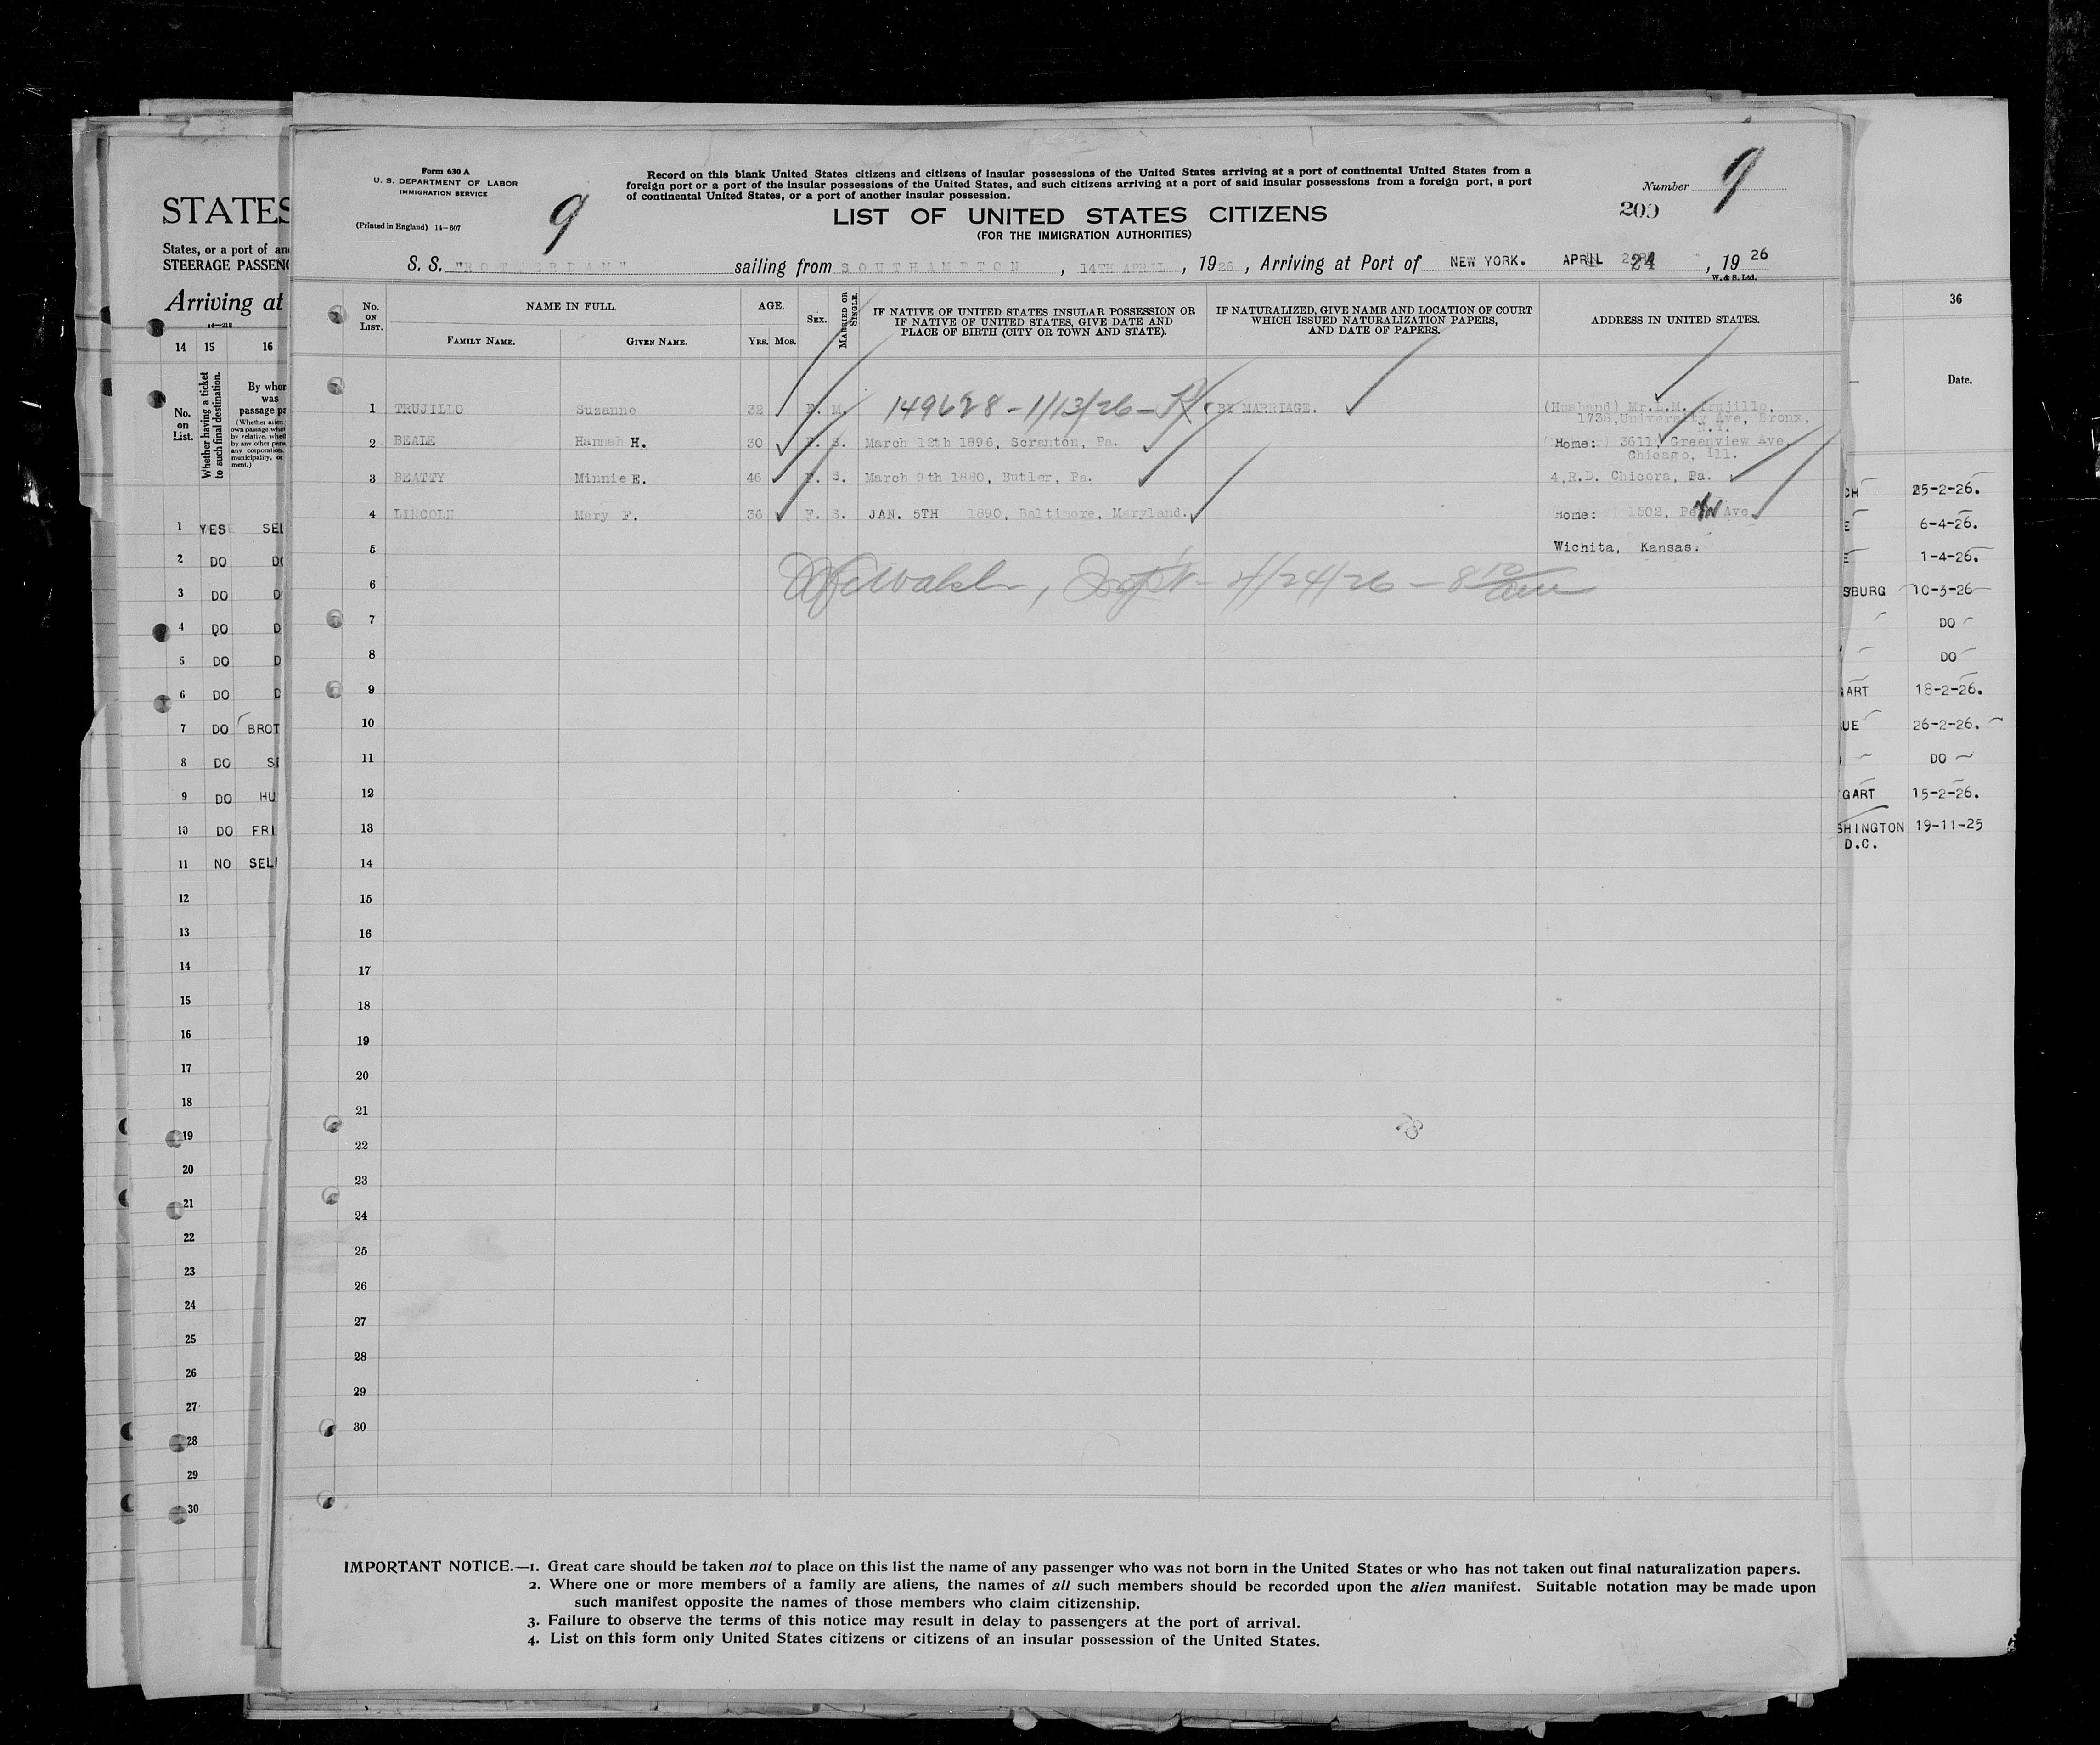 Form 630 A
U. S. DEPARTMENT OF LABOR
IMMIGRATION SERVICE
(Printed in England) 14—607
9
Record on this blank United States citizens and citizens of insular possessions of the United States arriving at a port of continental United States from a
foreign port or a port of the insular possessions of the United States, and such citizens arriving at a port of said insular possessions from a foreign port, a port
of continental United States, or a port of another insular possession.
Number 9
200
LIST OF UNITED STATES CITIZENS
(FOR THE IMMIGRATION AUTHORITIES)
S. S. "ROTTERDAM" sailing from SOUTHAMPTON, 14TH APRIL, 1926, Arriving at Port of NEW YORK. APRIL 24, 1926
W. & S. Ltd.
No. ON LIST. NAME IN FULL. AGE. SEX. MARRIED OR SINGLE. IF NATIVE OF UNITED STATES INSULAR POSSESSION OR IF NATIVE OF UNITED STATES, GIVE DATE AND PLACE OF BIRTH (CITY OR TOWN AND STATE). IF NATURALIZED, GIVE NAME AND LOCATION OF COURT WHICH ISSUED NATURALIZATION PAPERS, AND DATE OF PAPERS. ADDRESS IN UNITED STATES.
FAMILY NAME. GIVEN NAME. YRS. MOS.
1 TRUJILLO Suzanne 32 F. M. 149628 - 1/13/26 - BY MARRIAGE. (Husband) Mr. L.M. Trujillo.
1738, University Ave, Bronx,
N.Y.
2 BEALE Hannah H. 30 F. S. March 12th 1896, Scranton, Pa. Home: 3611, Greenview Ave,
Chicago, Ill.
3 BEATTY Minnie E. 46 F. S. March 9th 1880, Butler, Pa. 4,R.D. Chicora, Pa.
4 LINCOLN Mary F. 36 F. S. JAN. 5TH 1890, Baltimore, Maryland. Home: 1502, Ave.
5 Wichita, Kansas.
6 Walsh, Insptr - 4/24/26 - 8 10 am
7
8
9
10
11
12
13
14
15
16
17
18
19
20
21
22
23
24
25
26
27
28
29
30
IMPORTANT NOTICE.—1. Great care should be taken not to place on this list the name of any passenger who was not born in the United States or who has not taken out final naturalization papers.
2. Where one or more members of a family are aliens, the names of all such members should be recorded upon the alien manifest. Suitable notation may be made upon
such manifest opposite the names of those members who claim citizenship.
3. Failure to observe the terms of this notice may result in delay to passengers at the port of arrival.
4. List on this form only United States citizens or citizens of an insular possession of the United States.
STATES
States, or a port of an
STEERAGE PASSEN
Arriving at
14—218
14 15 16
No. on List. Whether having a ticket to such final destination. By whom was passage pa
1 YES SEL
2 DO DO
3 DO D
4 DO D
5 DO D
6 DO D
7 DO BROT
8 DO SE
9 DO HU
10 DO FRI
11 NO SELF
12
13
14
15
16
17
18
19
20
21
22
23
24
25
26
27
28
29
30
36
Date.
CH 25-2-26.
E 6-4-26.
E 1-4-26.
SBURG 10-3-26
DO
DO
ART 18-2-26.
UE 26-2-26.
DO
GART 15-2-26.
SHINGTON 19-11-25
D.C.